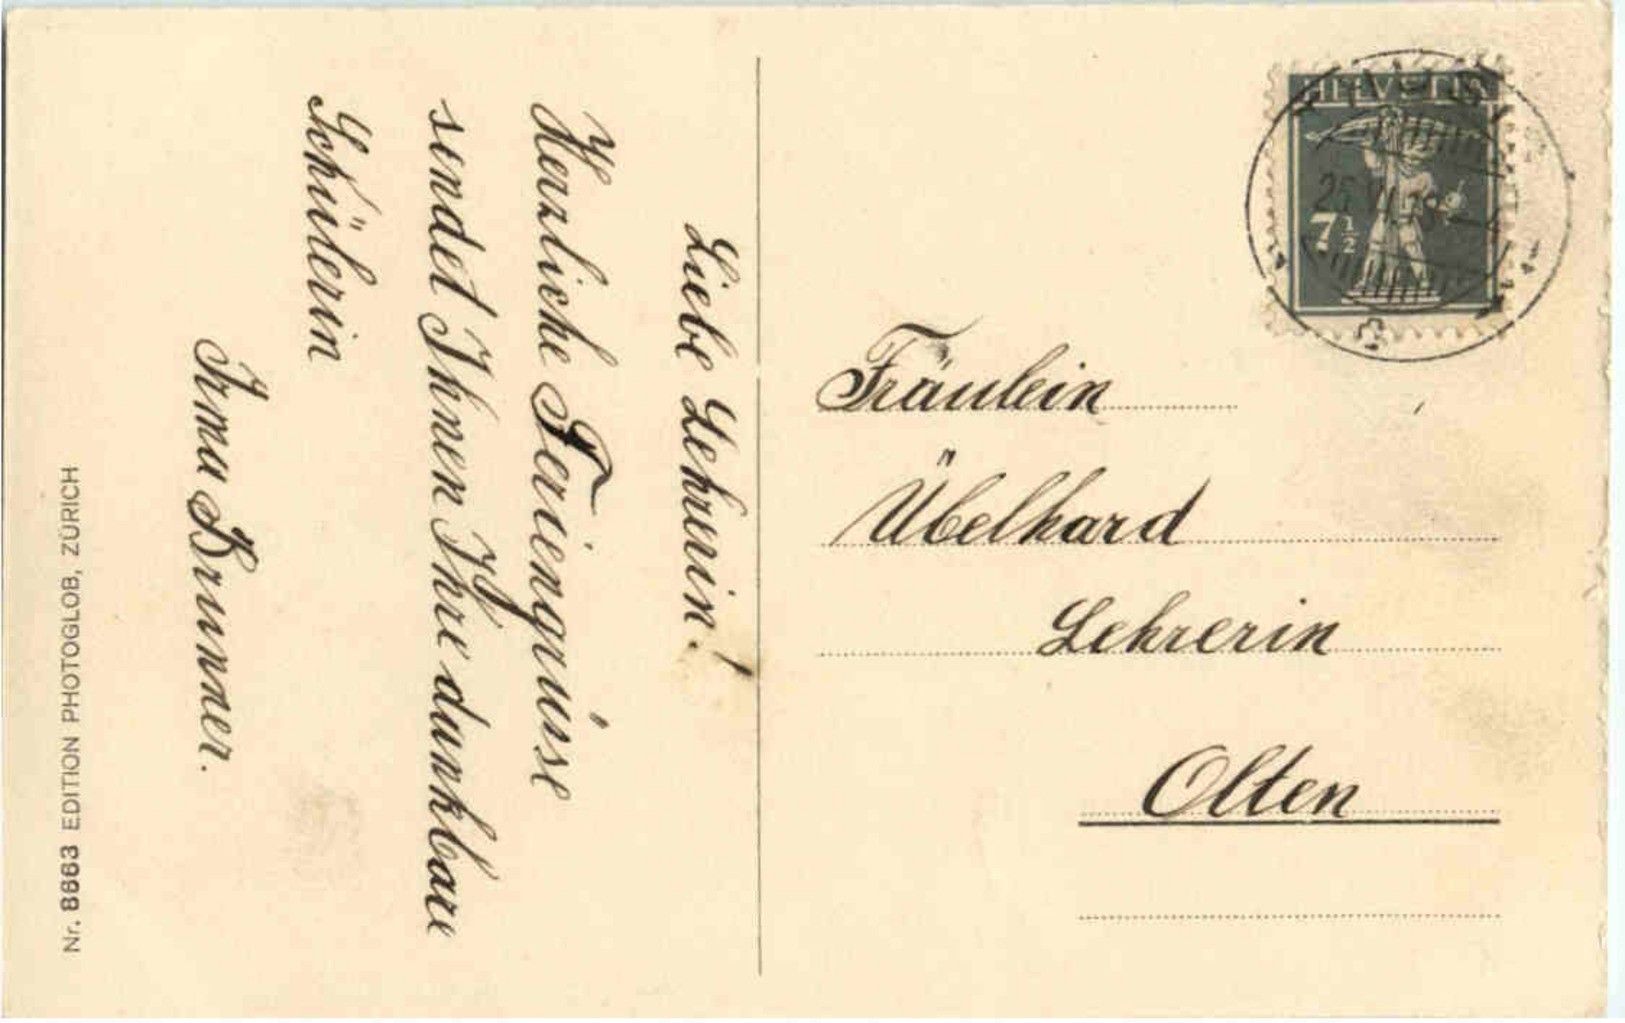 Liebe Lehrerin!
Herzliche Feriengrüsse
sendet Ihnen Ihre dankbare
Schülerin
Irma Brunner.
Fräulein
Übelhard
Lehrerin
Olten
HELVETIA
7½
Nr. 8663 EDITION PHOTOGLOB, ZÜRICH